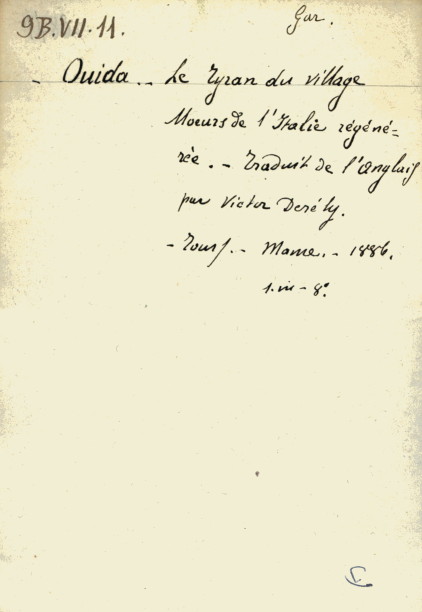 9B.VII.11.
Gar.
Ouida.. Le Tyran du village
Moeurs de l'Italie régéné=
rée. - Traduit de l'Anglais
par Victor Derély.
- Tours. - Mame. - 1886.
1. in - 8°.